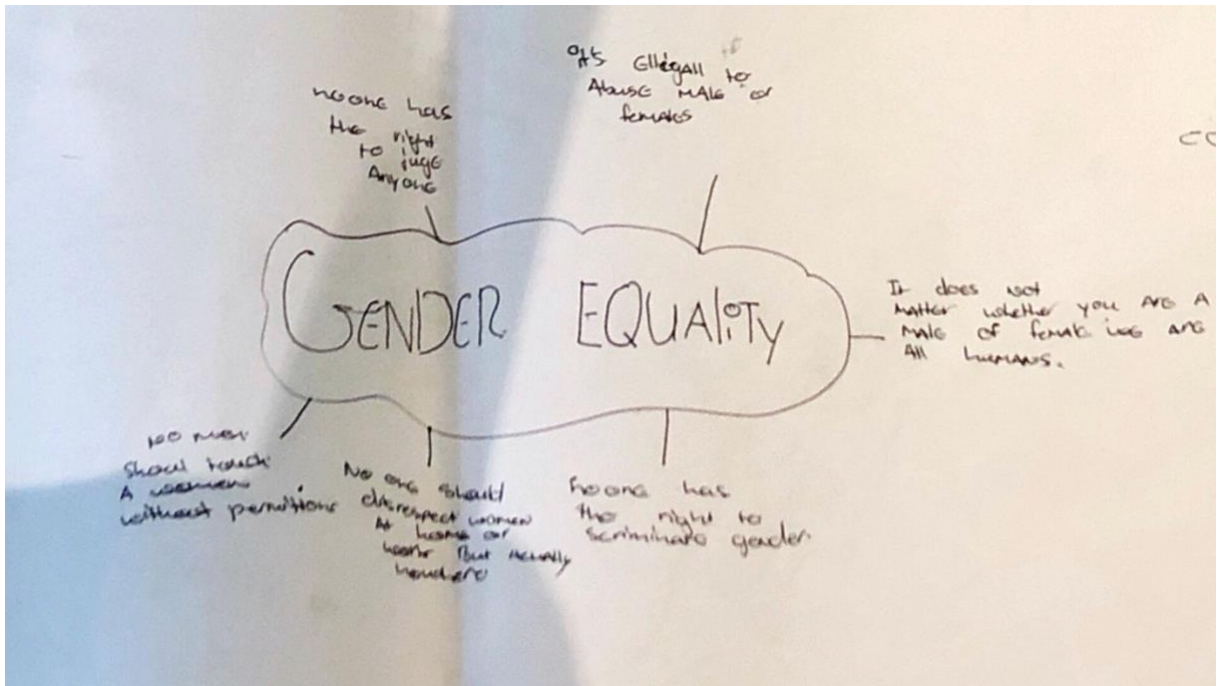 no one has
the right
to juge
Anyone
It's Ellegall to
Abuse male or
females
CO
GENDER EQUALITY
It does not
matter whether you are a
male of female we are
All humans.
No men
Shoul touch
A women
without permitions
No one should
disrespect women
At home or
work But Actually
nowhere
no one has
the right to
scriminate gender.